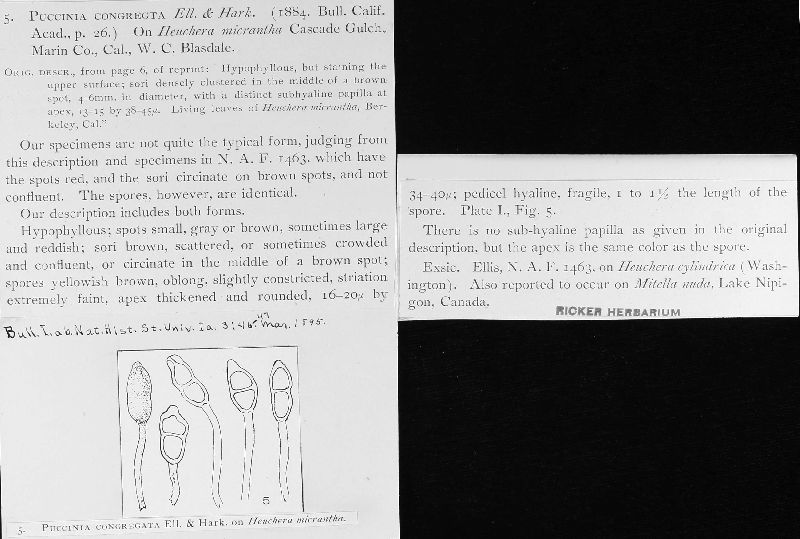 5. PUCCINIA CONGREGTA Ell. & Hark. (1884, Bull. Calif.
Acad., p. 26.) On Heuchera micrantha Cascade Gulch,
Marin Co., Cal., W. C. Blasdale.
ORIG. DESCR., from page 6, of reprint: Hypophyllous, but staining the
upper surface; sori densely clustered in the middle of a brown
spot, 4 6mm. in diameter, with a distinct subhyaline papilla at
apex, 13-15 by 38-45µ. Living leaves of Heuchera micrantha, Ber-
keley, Cal."
Our specimens are not quite the typical form, judging from
this description and specimens in N. A. F. 1463, which have
the spots red, and the sori circinate on brown spots, and not
confluent. The spores, however, are identical.
Our description includes both forms.
Hypophyllous; spots small, gray or brown, sometimes large
and reddish; sori brown, scattered, or sometimes crowded
and confluent, or circinate in the middle of a brown spot;
spores yellowish brown, oblong, slightly constricted, striation
extremely faint, apex thickened and rounded, 16-20µ by
Bull. Lab. Nat. Hist. St. Univ. Ia. 3: Mar. 1895.
5
5. PUCCINIA CONGREGATA Ell. & Hark. on Heuchera micrantha.
34-40µ; pedicel hyaline, fragile, 1 to 1½ the length of the
spore. Plate I., Fig. 5.
There is no sub-hyaline papilla as given in the original
description, but the apex is the same color as the spore.
Exsic. Ellis, N. A. F. 1463, on Heuchera cylindrica (Wash-
ington). Also reported to occur on Mitella nuda, Lake Nipi-
gon, Canada.
RICKER HERBARIUM